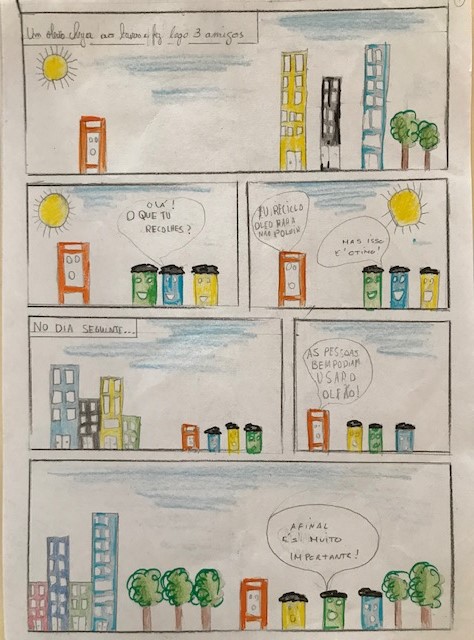 Um oleão chega ao bairro e faz logo 3 amigos
OLÁ!
O QUE TU
RECOLHES?
EU RECICLO
ÓLEO PARA
NÃO POLUIR
MAS ISSO
É ÓTIMO!
NO DIA SEGUINTE...
AS PESSOAS
BEM PODIAM
USAR O
OLEÃO!
AFINAL
ÉS MUITO
IMPORTANTE!